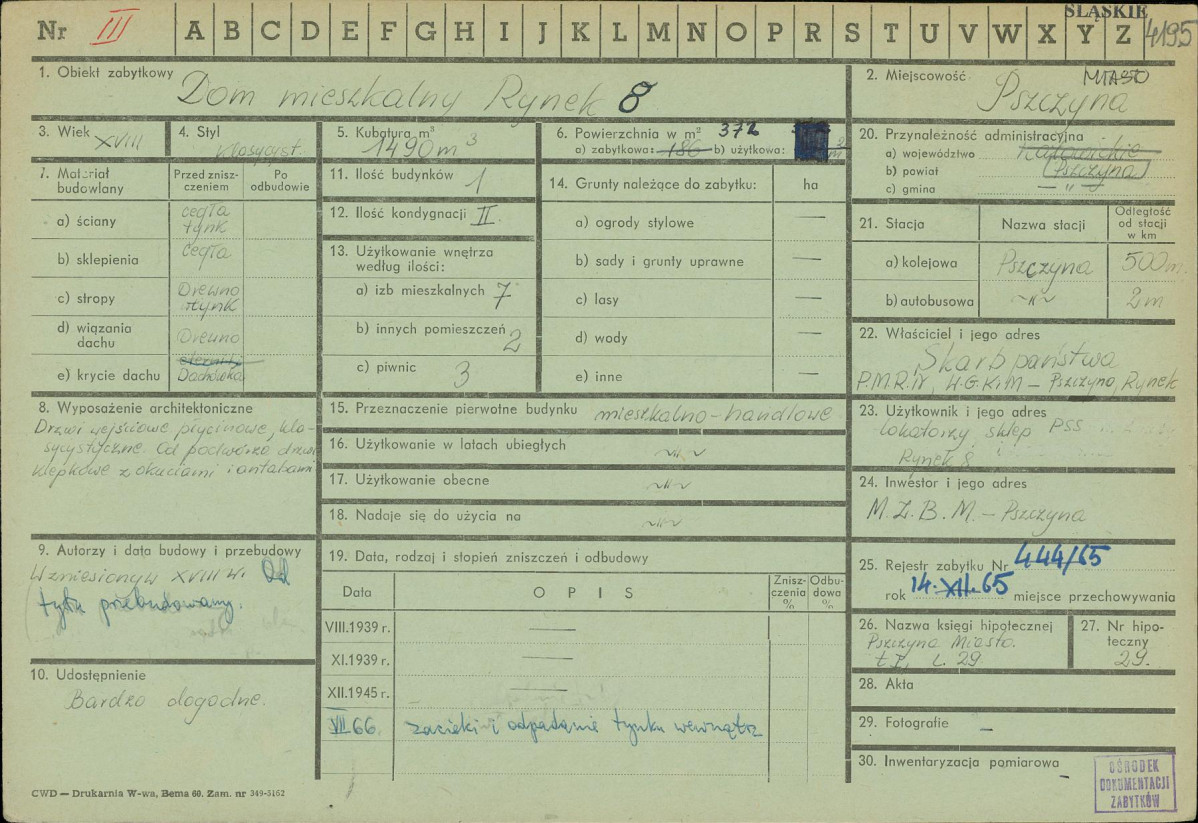 Nr III A B C D E F G H I J K L M N O P R S T U V W X Y Z
ŚLĄSKIE
4195
1. Obiekt zabytkowy
Dom mieszkalny Rynek 8
2. Miejscowość MIASTO
Pszczyna
3. Wiek
XVIII
4. Styl
Klasycyst.
5. Kubatura m³
1490 m³
6. Powierzchnia w m² 372
a) zabytkowa: 186 b) użytkowa: m²
7. Materiał budowlany
Przed zniszczeniem
Po odbudowie
a) ściany
cegła
tynk
b) sklepienia
cegła
c) stropy
Drewno
tynk
d) wiązania dachu
Drewno
e) krycie dachu
eternit
Dachówka
8. Wyposażenie architektoniczne
Drzwi wejściowe płycinowe, kla-
sycystyczne. Od podwórza drzwi
klepkowe z okuciami i antabami
9. Autorzy i data budowy i przebudowy
Wzniesiony w XVIII w. Od
tyłu przebudowany.
10. Udostępnienie
Bardzo dogodne.
11. Ilość budynków 1
12. Ilość kondygnacji II
13. Użytkowanie wnętrza
według ilości:
a) izb mieszkalnych 7
b) innych pomieszczeń 2
c) piwnic 3
14. Grunty należące do zabytku: ha
a) ogrody stylowe —
b) sady i grunty uprawne —
c) lasy —
d) wody —
e) inne —
15. Przeznaczenie pierwotne budynku mieszkalno-handlowe
16. Użytkowanie w latach ubiegłych ~"~
17. Użytkowanie obecne ~"~
18. Nadaje się do użycia na ~"~
19. Data, rodzaj i stopień zniszczeń i odbudowy
Data
O P I S
Zniszczenia %
Odbudowa %
VIII.1939 r. —
XI.1939 r. —
XII.1945 r. —
VII 66. zacieki i odpadanie tynku wewnątrz
20. Przynależność administracyjna
a) województwo Katowickie
b) powiat Pszczyna
c) gmina — " —
21. Stacja
Nazwa stacji
Odległość od stacji w km
a) kolejowa Pszczyna 500 m.
b) autobusowa ~"~ 2 m
22. Właściciel i jego adres
Skarb państwa
P.M.R.N., W.G.K.i M – Pszczyna, Rynek
23. Użytkownik i jego adres
lokatorzy sklep PSS
Rynek 8
24. Inwestor i jego adres
M.Z.B.M. – Pszczyna
25. Rejestr zabytku Nr 444/65
rok 14.XII.65 miejsce przechowywania
26. Nazwa księgi hipotecznej
Pszczyna Miasto.
t I, L. 29
27. Nr hipoteczny
29.
28. Akta
29. Fotografie –
30. Inwentaryzacja pomiarowa –
OŚRODEK
DOKUMENTACJI
ZABYTKÓW
CWD — Drukarnia W-wa, Bema 60. Zam. nr 349-5162